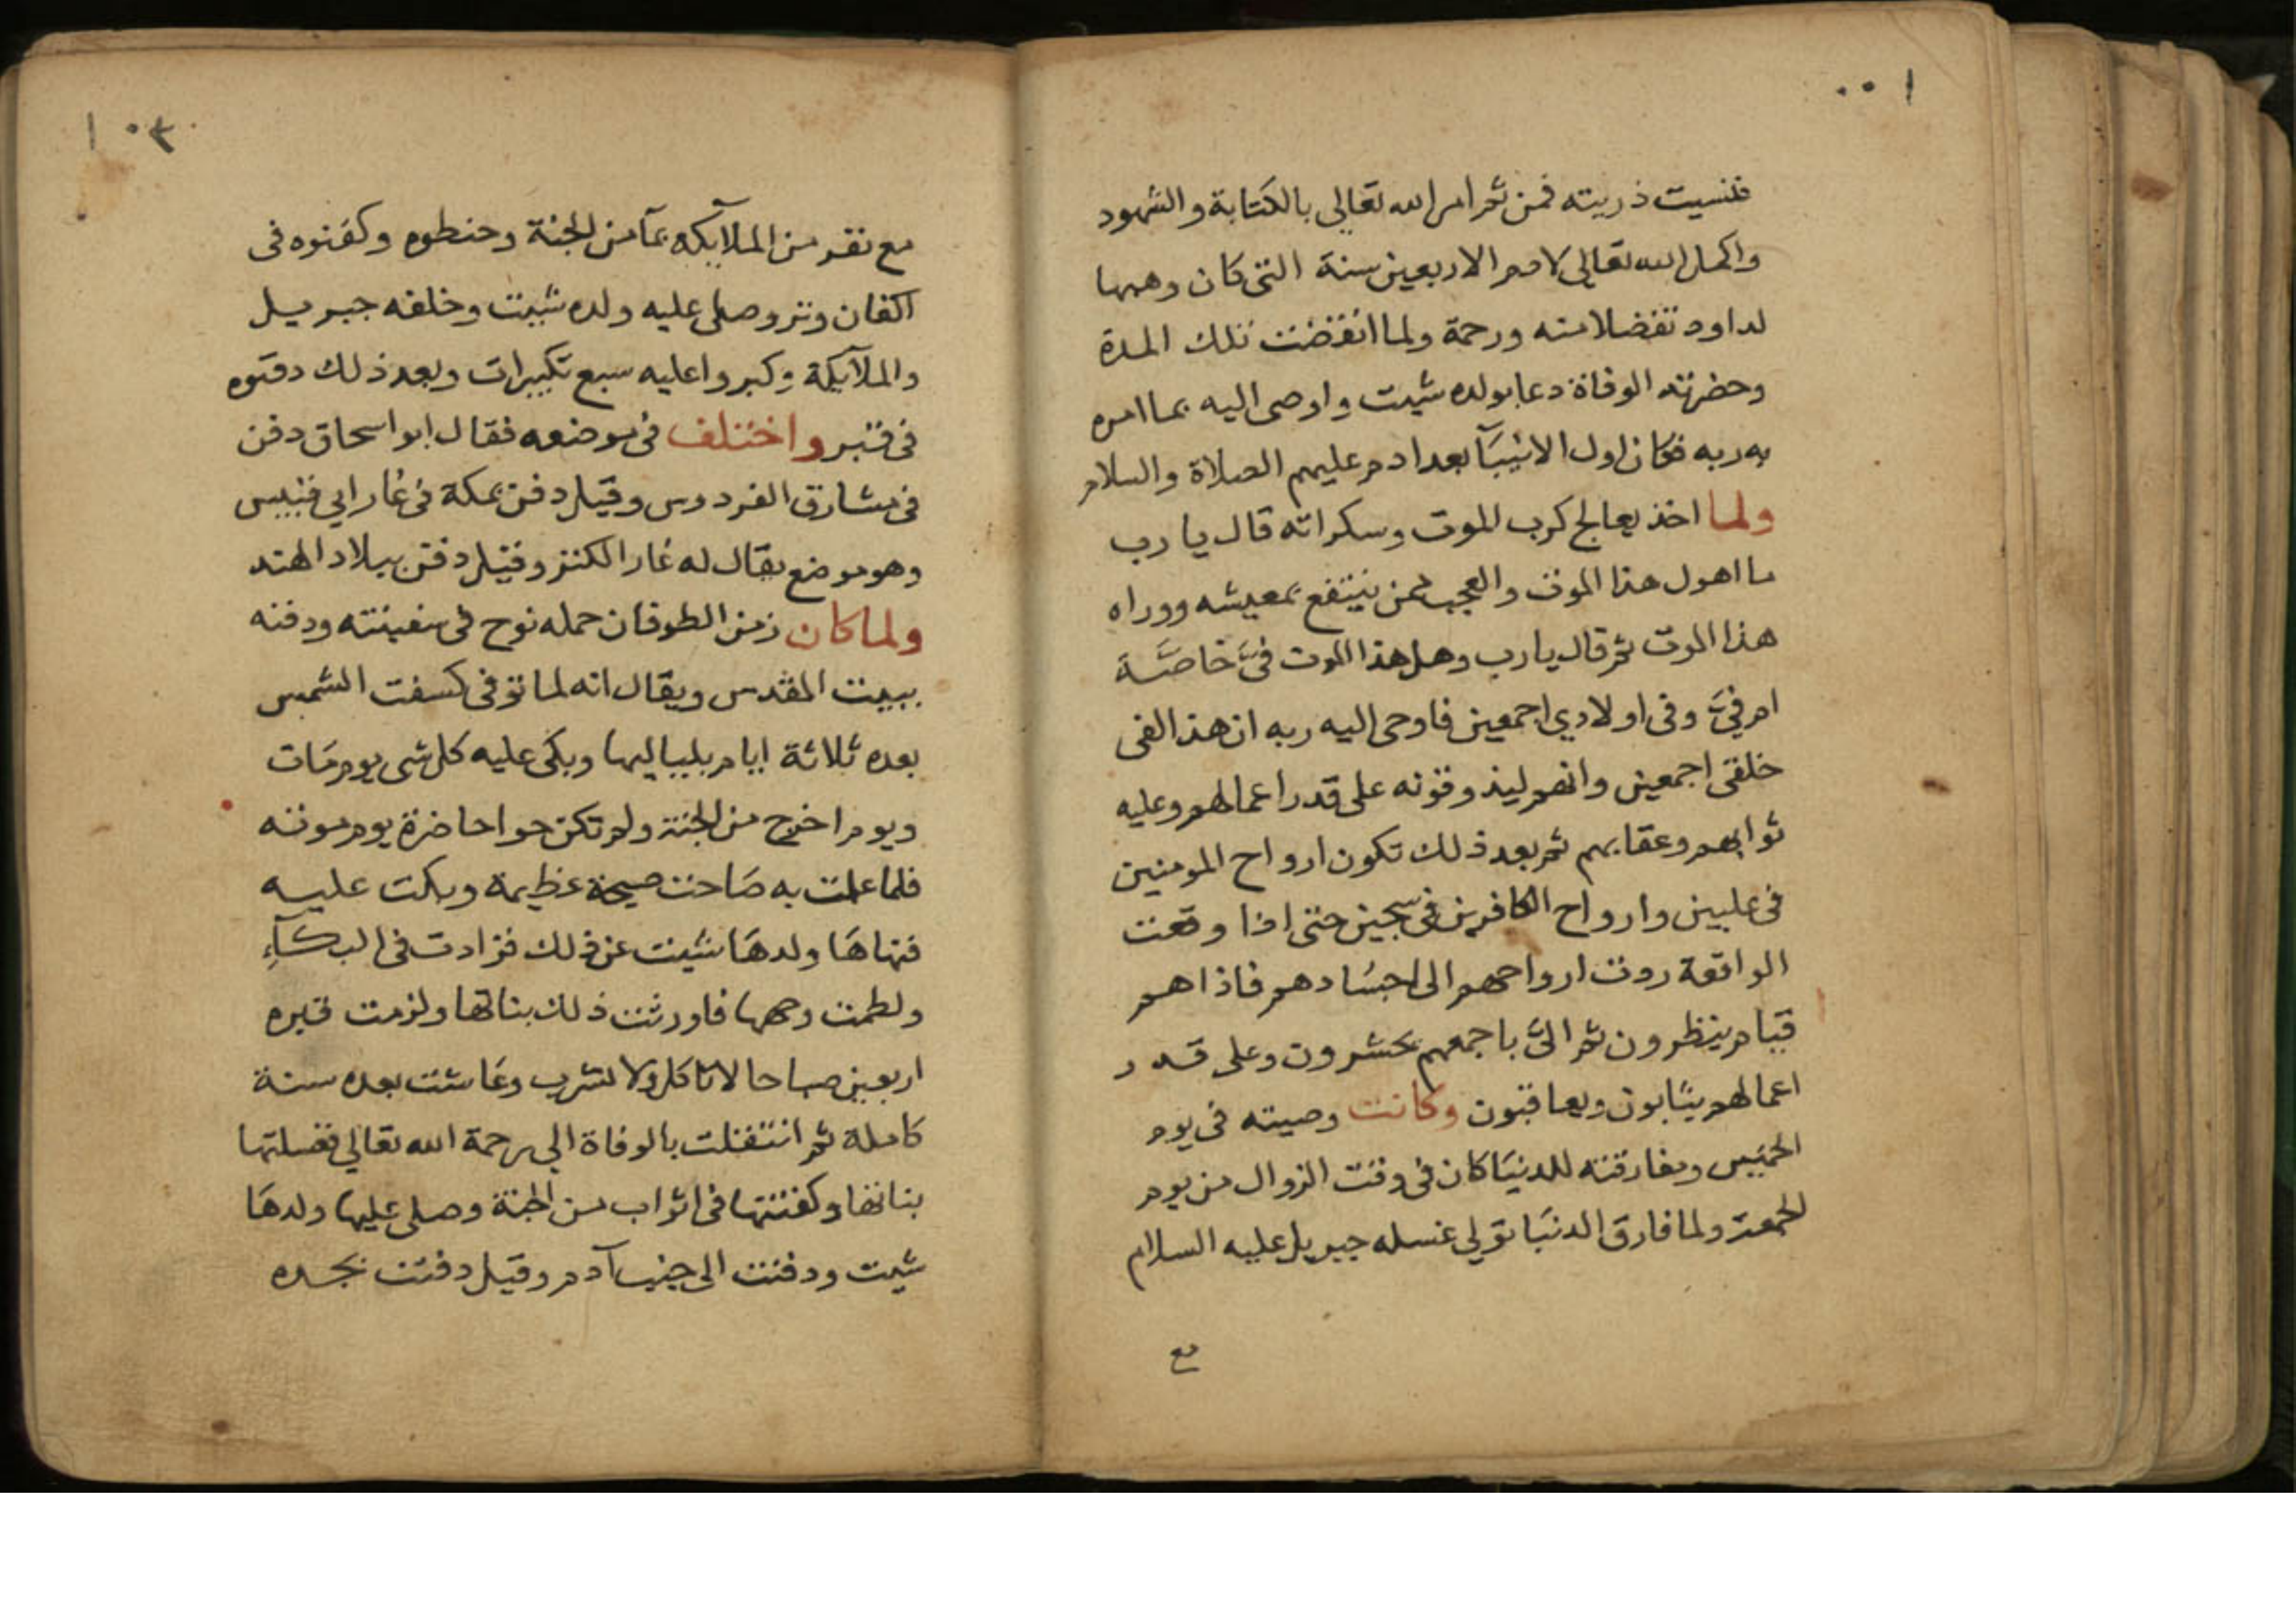 ١٠٠
فنسيت ذريته فمن ثم امر الله تعالى بالكتابة والشهود
واكمل الله تعالى لادم الاربعين سنة التى كان وهبها
لداود تفضلا منه ورحمة ولما انقضت تلك المدة
وحضرته الوفاة دعا بولده شيث واوصى اليه بما امره
به ربه فكان اول الانبيآ بعد ادم عليهم الصلاة والسلام
ولما اخذ يعالج كرب الموت وسكراته قال يا رب
ما اهول هذا الموت والعجب لمن ينتفع بمعيشه ووراه
هذا الموت ثم قال يا رب وهل هذا الموت فيَّ خاصَّة
ام فيَّ وفى اولادي اجمعين فاوحى اليه ربه ان هذا لفى
خلقى اجمعين وانهم ليذوقونه على قدر اعمالهم وعليه
ثوابهم وعقابهم ثم بعد ذلك تكون ارواح المومنين
فى عليين وارواح الكافرين فى سجين حتى اذا وقعت
الواقعة ردت ارواحهم الى اجسادهم فاذا هم
قيام ينظرون ثم الىَّ باجمعهم يحشرون وعلى قدر
اعمالهم يثابون ويعاقبون وكانت وصيته فى يوم
الخميس ومفارقته للدنيا كان فى وقت الزوال من يوم
الجمعة ولما فارق الدنيا تولي غسله جبريل عليه السلام
مع
١٠٣
مع نفر من الملآيكه بمآ من الجنة وحنطوه وكفنوه فى
اكفان وتر وصلى عليه ولده شيث وخلفه جبريل
والملآيكة وكبروا عليه سبع تكبيرات وبعد ذلك دفنوه
فى قبر واختلف فى موضعه فقال ابو اسحاق دفن
فى مشارق الفردوس وقيل دفن بمكة فى غار ابي قبيس
وهو موضع يقال له غار الكنز وقيل دفن ببلاد الهند
ولما كان زمن الطوفان حمله نوح فى سفينته ودفنه
ببيت المقدس ويقال انه لما توفى كسفت الشمس
بعده ثلاثة ايام بلياليها وبكى عليه كل شى يوم مات
ويوم اخرج من الجنة ولم تكن حوا حاضرة يوم موته
فلما علمت به صاحت صيحة عظيمة وبكت عليه
فنهاها ولدها شيث عن ذلك فزادت فى البكآء
ولطمت وجهها فاورثت ذلك بناتها ولزمت قبره
اربعين صباحا لا تاكل ولا تشرب وعاشت بعده سنة
كاملة ثم انتقلت بالوفاة الي رحمة الله تعالي فغسلتها
بناتها وكفنتها فى اثواب من الجنة وصلى عليها ولدها
شيث ودفنت الى جنب آدم وقيل دفنت بجده